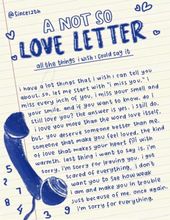 @Since12th
A NOT SO
LOVE LETTER
all the things i wish i could say it
i have a lot things that i wish i can tell you
about. so, let me start with "i miss you." i
miss every inch of you, i miss your smell and
your smile. and if you want to know, do i
still love you? the answer is yes. i still do.
i love you more than the word love itself.
but, you deserve someone better than me.
someone that make you feel loved. the kind
of love that makes your heart fill with
warmth. less thing i want to say is i'm
sorry. i'm sorry for leaving you, i got
scared of everything. i
want you to see how weak
i am and make you in trouble
just because of me. once again.
i'm sorry for everything.